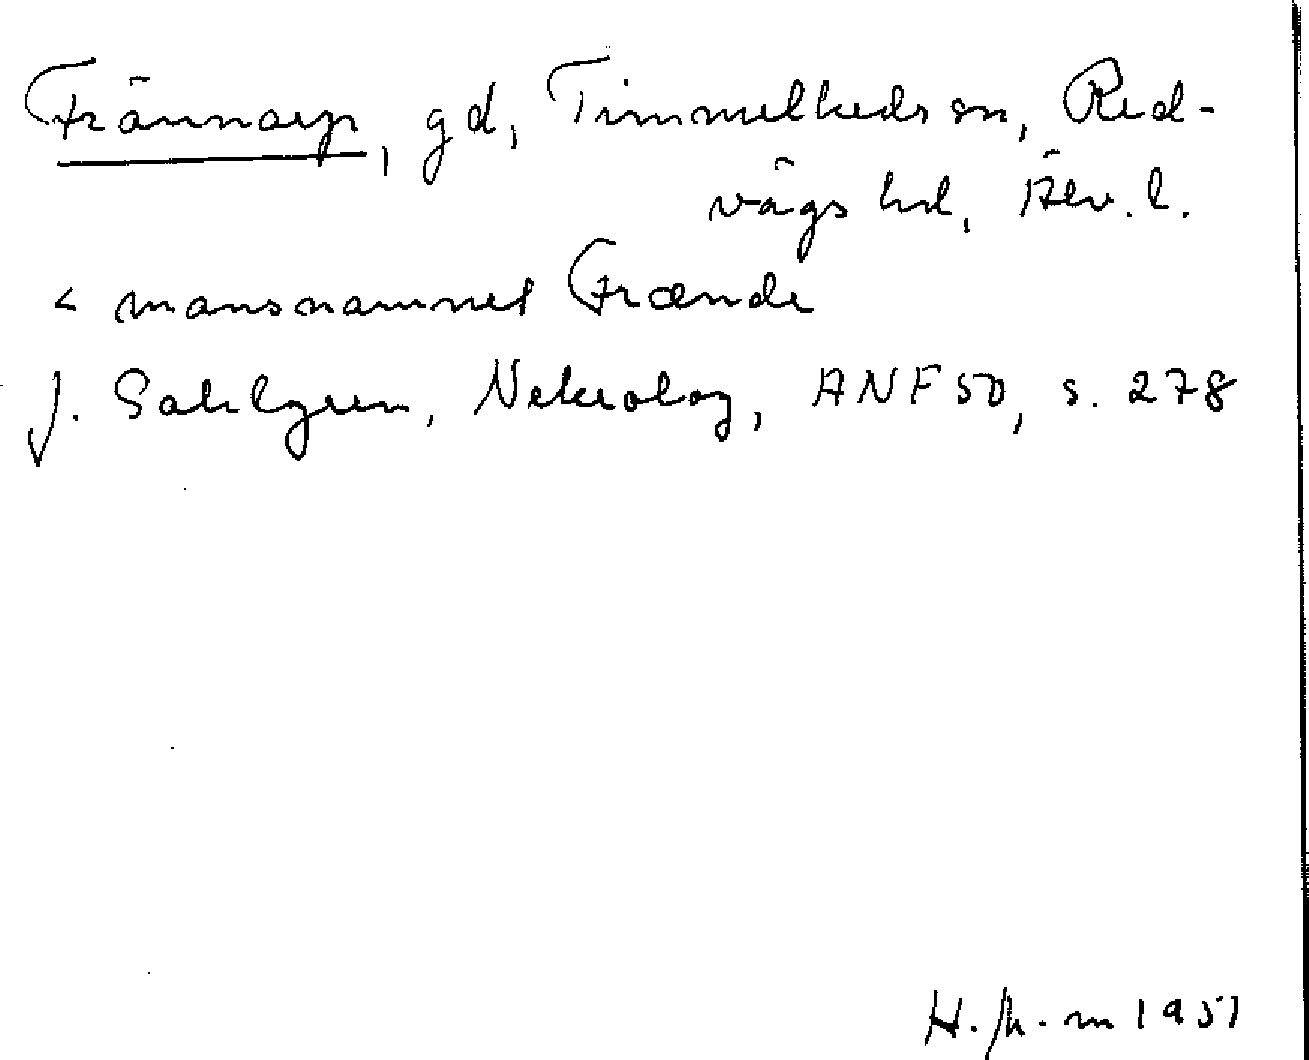 Frännarp, gd, Timmelheds sn, Red-
vägs hd, Älv. l.
< mansnamnet Frænde
J. Sahlgren, Nekrolog, ANF 50, s. 278
1951